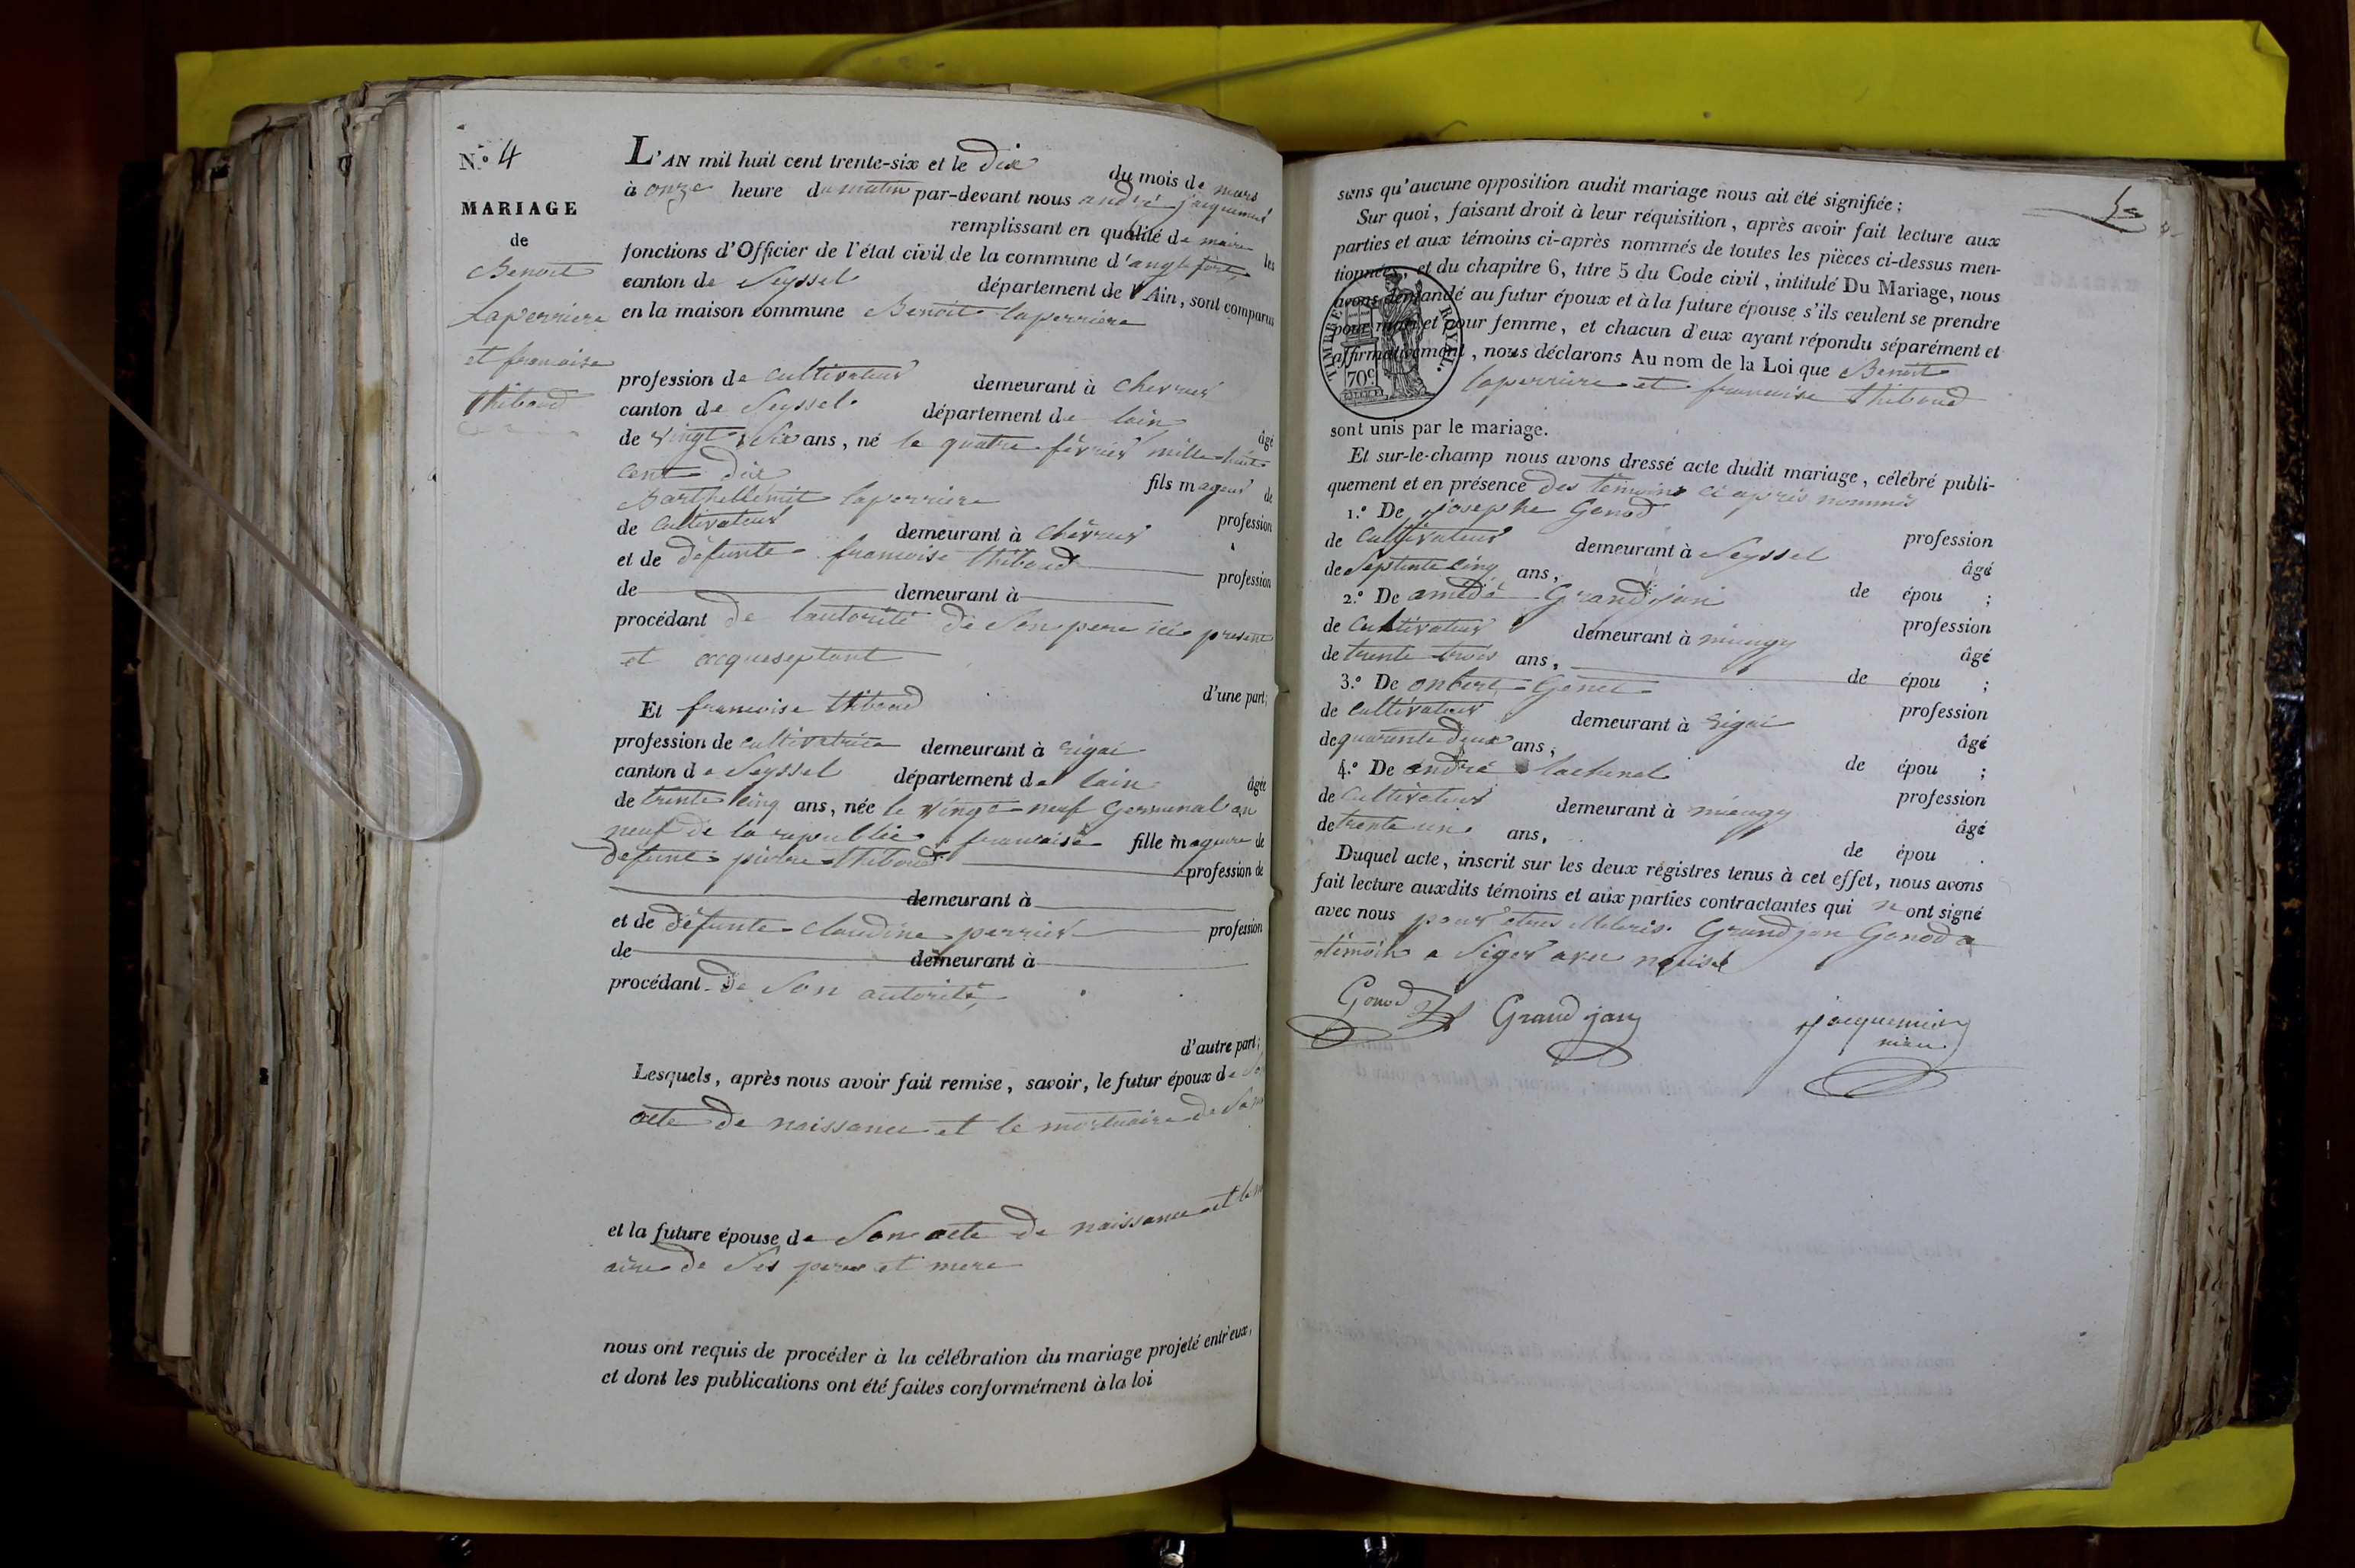 N.º 4
MARIAGE
de
Benoit
Laperriere
et francoise
thiboud
L'AN mil huit cent trente-six et le dix du mois de mars
à onze heure du matin par-devant nous andré jacquemin
remplissant en qualité de maire les
fonctions d'Officier de l'état civil de la commune d'anglefort
canton de Seyssel département de l'Ain, sont comparus
en la maison commune Benoit laperriere
profession de cultivateur demeurant à chevrier
canton de Seyssel département de lain âgé
de vingt six ans, né le quatre février mille huit
cent dix fils mageur de
Barthellemit laperriere profession
de cultivateur demeurant à chevrier
et de défunte francoise thiboud profession
de demeurant à
procédant de lautorité de Son pere ici present
et acqueseptant
d'une part;
Et francoise thiboud
profession de cultivatrice demeurant à rigai
canton de Seyssel département de lain âgée
de trente cinq ans, née le vingt neuf Germinal an
neuf de la republic francaise fille mageure de
defunt pierre thiboud profession de
demeurant à
et de défunte claudine perrier profession
de demeurant à
procédant de Son autorité
d'autre part;
Lesquels, après nous avoir fait remise, savoir, le futur époux de Son
acte de naissance et le mortuaire de Sa
et la future épouse de Son acte de naissance et le
aire de Ses peres et mere
nous ont requis de procéder à la célébration du mariage projeté entr'eux,
et dont les publications ont été faites conformément à la loi
sans qu'aucune opposition audit mariage nous ait été signifiée;
Sur quoi, faisant droit à leur réquisition, après avoir fait lecture aux
parties et aux témoins ci-après nommés de toutes les pièces ci-dessus men-
tionnées, et du chapitre 6, titre 5 du Code civil, intitulé Du Mariage, nous
avons demandé au futur époux et à la future épouse s'ils veulent se prendre
pour mari et pour femme, et chacun d'eux ayant répondu séparément et
affirmativement, nous déclarons Au nom de la Loi que Benoit
laperriere et francoise thiboud
TIMBRE ROYAL.
70c
sont unis par le mariage.
Et sur-le-champ nous avons dressé acte dudit mariage, célébré publi-
quement et en présence des temoins ci après nommés
1.º De josephe Gonod profession
de cultivateur demeurant à Seyssel âgé
de Septente cinq ans, de épou ;
2.º De amédé Grandjan profession
de Cultivateur demeurant à mieugy âgé
de trente trois ans, de épou ;
3.º De onbert Genet profession
de cultivateur demeurant à rigai âgé
de quarante deux ans, de épou ;
4.º De andré lachenal profession
de cultivateur demeurant à mieugy âgé
de trente un ans, de épou .
Duquel acte, inscrit sur les deux régistres tenus à cet effet, nous avons
fait lecture auxdits témoins et aux parties contractantes qui n ont signé
avec nous pour etres Grandjan Gonod
témoin a Signer avec
Gonod
Grandjan
jacquemin
maire